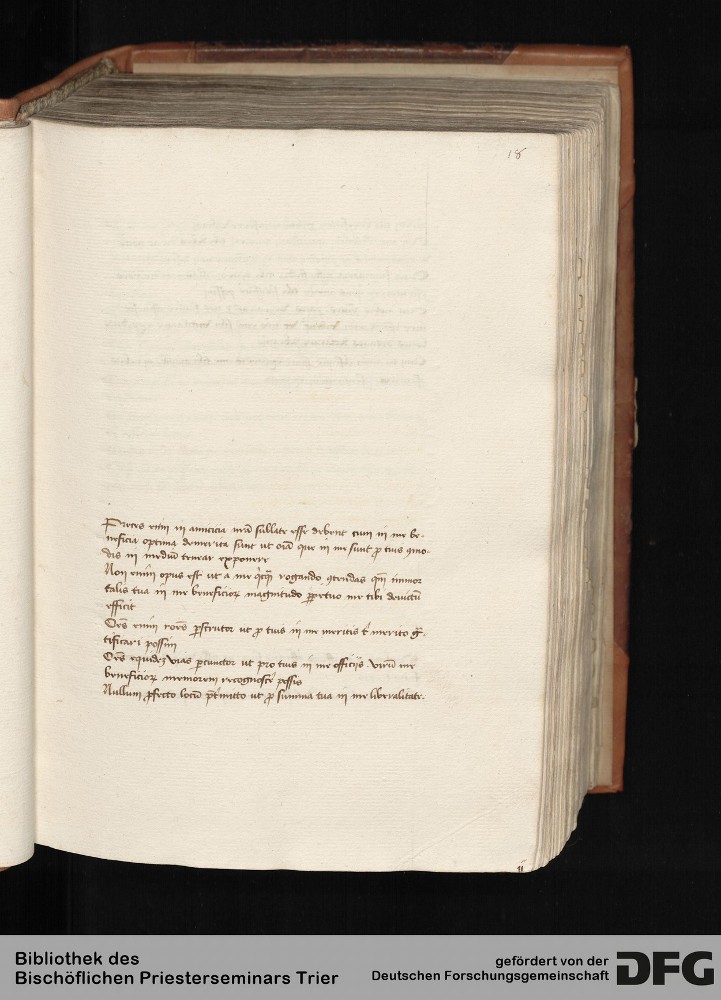 18
Preces enim in amicicia nr̄a sullate esse debent cum in me be-
neficia optima demerita sunt ut oīa que in me sunt ꝓ tuis cōmo-
dis in mediū tenear exponere
Non enim opus est ut a me rogando ꝯtendas inmor
talis tua in me beneficioꝝ magnitudo ꝑpetuo me tibi deuictū
efficit
Oēs enim rōes ꝑscrutor ut ꝓ tuis in me meritis t̄ merito
tificari possim
Oēs equidē vias ꝑcunctor ut pro tuis in me officijs virū me
beneficioꝝ memorem recognosce᷑ possis
Nullum ꝓfecto locū p̄t᷑mitto ut ꝓ summa tua in me liberalitate.
Bibliothek des
Bischöflichen Priesterseminars Trier
gefördert von der
Deutschen Forschungsgemeinschaft
DFG